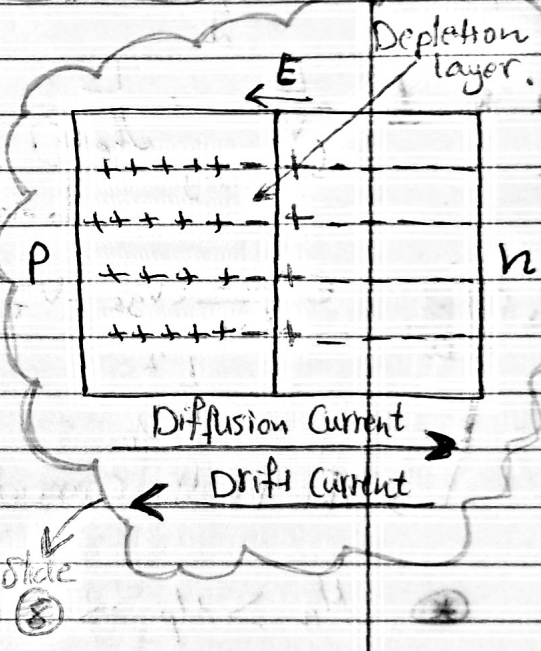 Depletion
layer.
E
+++++ - + - - - -
+++++ - + - - - -
P
n
++++ - + - - - -
+++++ - + - - - -
Diffusion Current
Drift Current
Slide